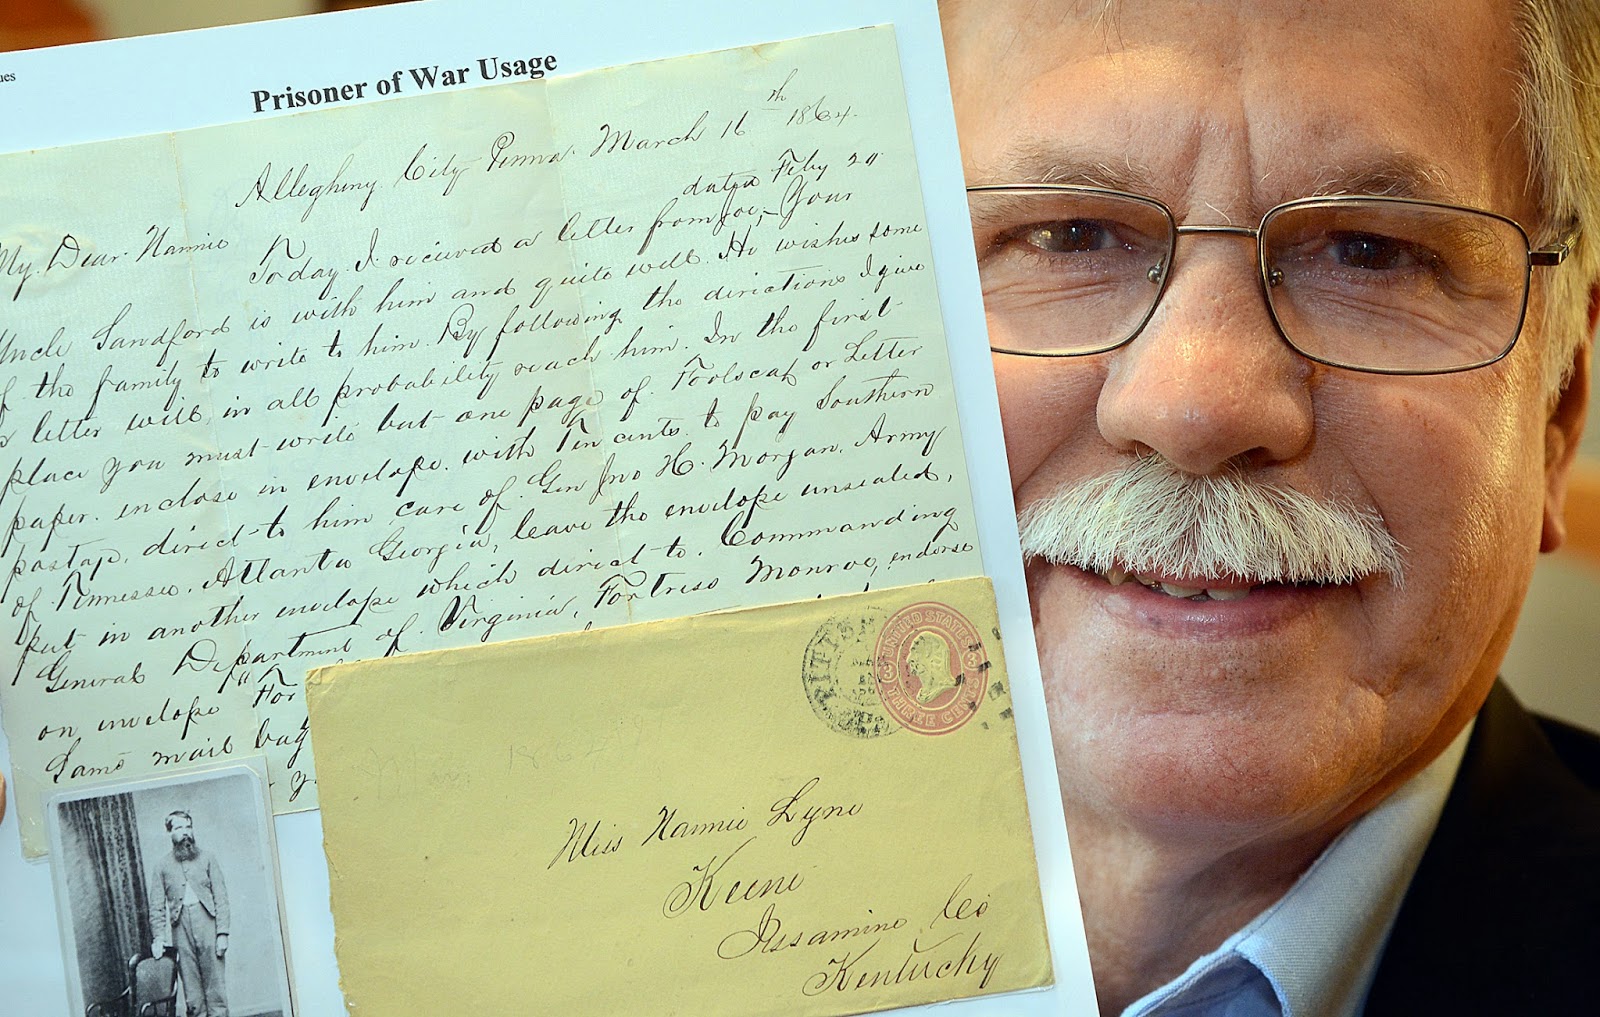 ues
Prisoner of War Usage
Alleghiny City Penna. March 16th 1864.
dated Feby 20
My Dear Nannie Today I recieved a letter from Joe, Your
Uncle Sandford is with him and quite well. He wishes some
of the family to write to him. By following the directions I give
a letter will, in all probability reach him. In the first
place you must write but one page of Foolscap or Letter
paper. inclose in envelope. with Ten cents to pay Southern
postage, direct to him care of Gen Jno H. Morgan, Army
of Tennessee, Atlanta Georgia, leave the envelope unsealed,
put in another envelope which direct to. Commanding
General Department of Virginia, Fortress Monroe, endorse
on envelope "For
Same mail bag
PITTSB
UNITED STATES
3 3
THREE CENTS
Mar. 186
Miss Nannie Lyne
Keene
Jessamine Co
Kentucky